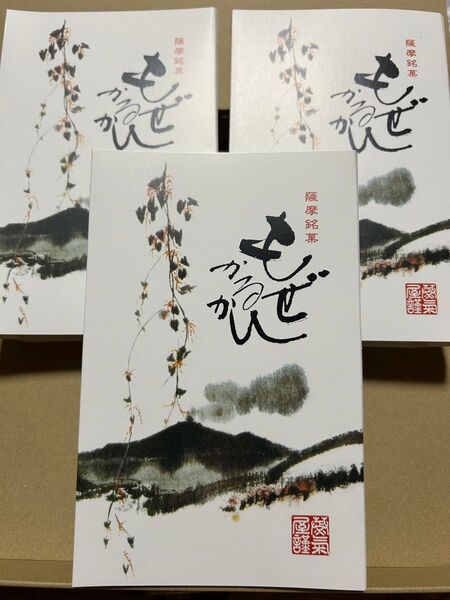 薩摩銘菓
もぜ
かるかん
薩摩銘菓
もぜ
かるかん
薩摩銘菓
もぜ
かるかん